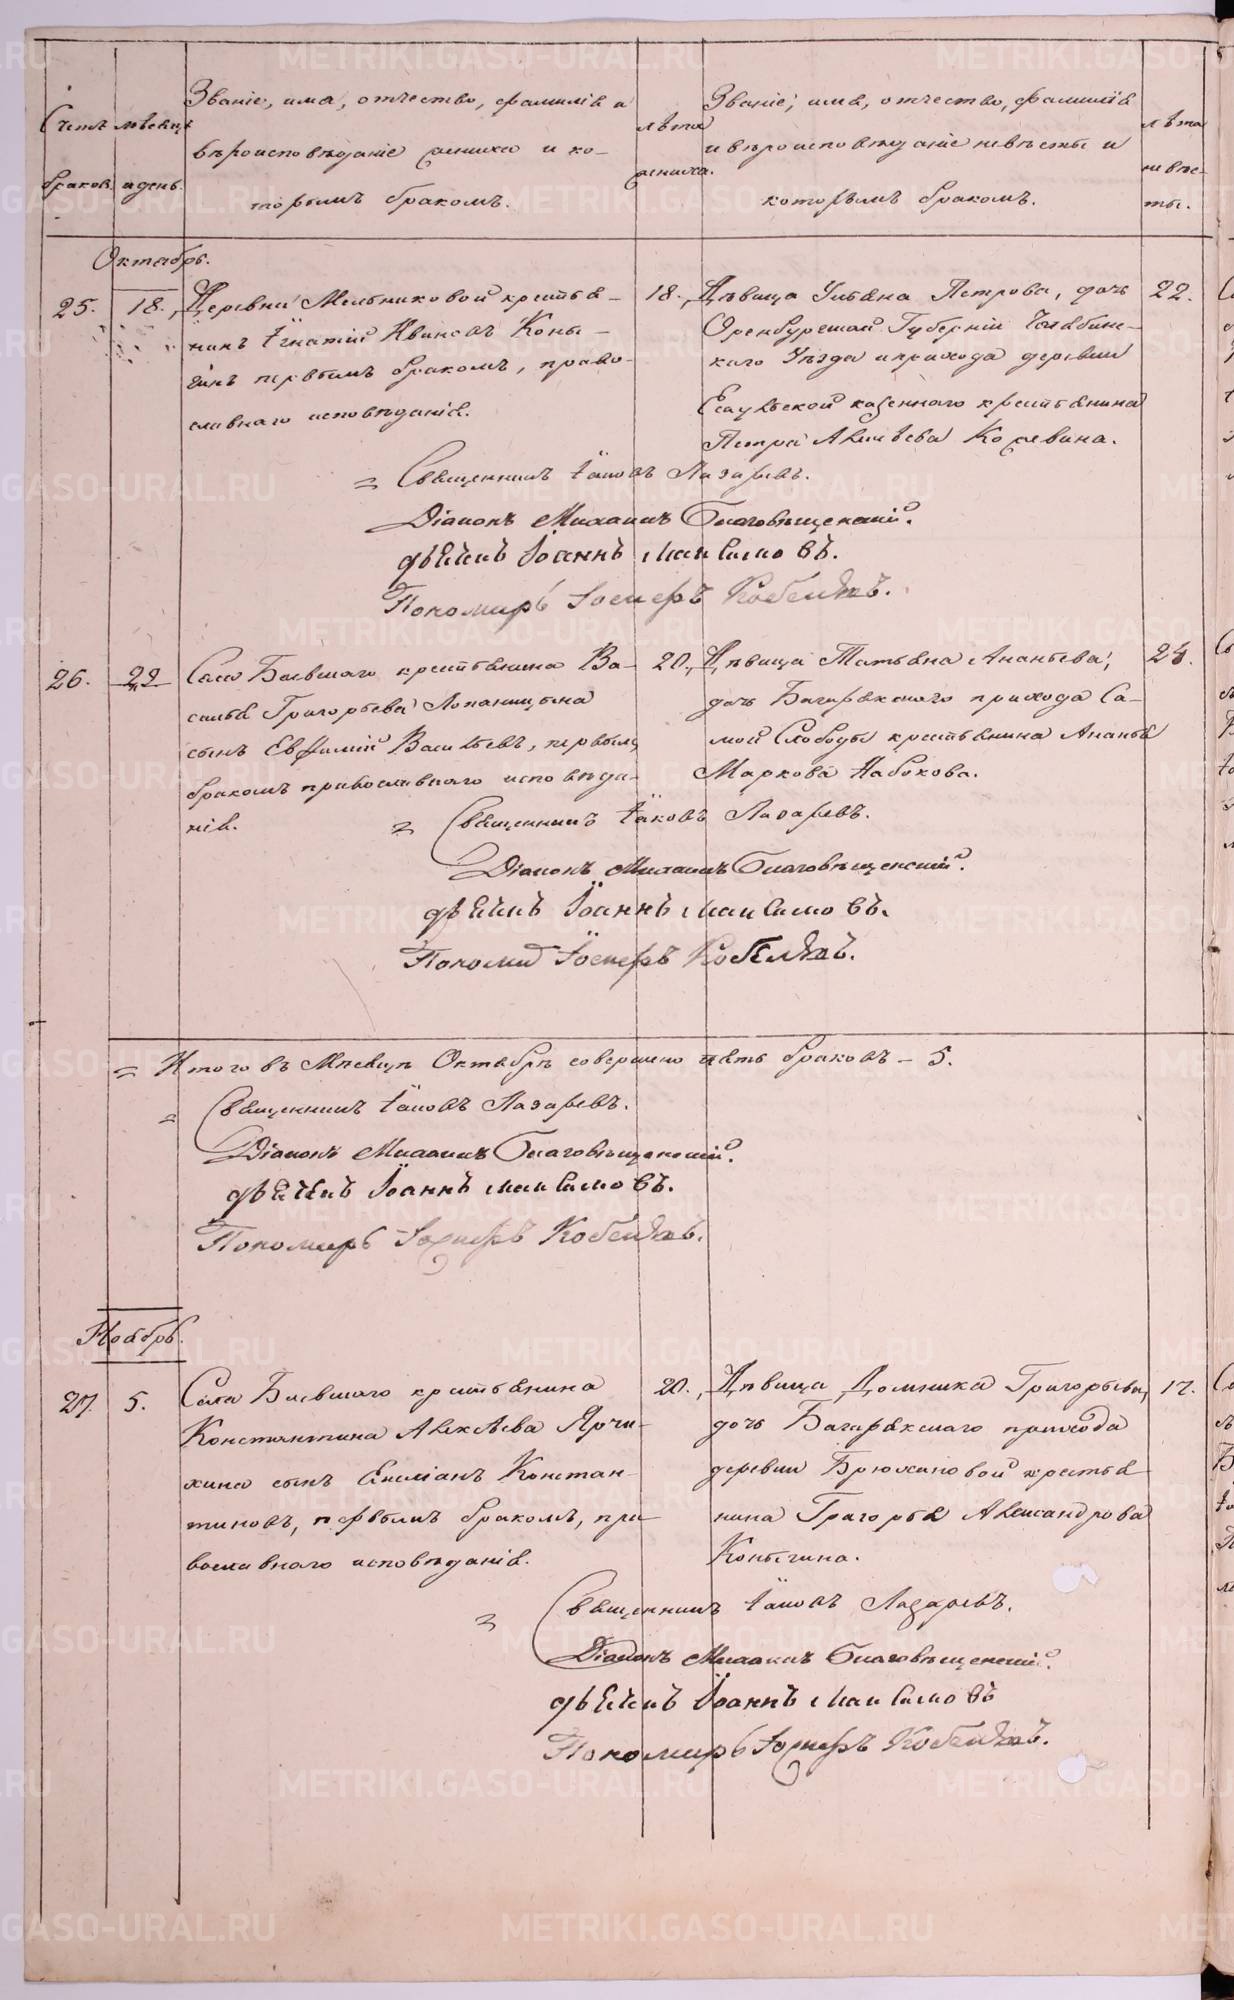 Счетъ браковъ.
мѣсяцъ и день.
Званіе, имя, отчество, фамилія и
вѣроисповѣданіе жениха и ко-
торымъ бракомъ.
лѣта
жениха.
Званіе, имя, отчество, фамилія
и вѣроисповѣданіе невѣсты и
которымъ бракомъ.
лѣта
невѣс-
ты.
Октябрь.
25. 18. Деревни Мельниковой крестья-
нинъ Игнатій Ивановъ Копы-
гинъ первымъ бракомъ, право-
славнаго исповѣданія.
18.
Дѣвица Ульяна Петрова, дочь
Оренбургской Губерніи Челябин-
скаго Уѣзда и прихода деревни
Есаульской казеннаго крестьянина
Петра Алексѣева Коревина.
22.
Священникъ Іаковъ Лазаревъ.
Діаконъ Михаилъ Благовѣщенскій.
дьячекъ Іоаннъ Максимовъ.
Пономарь Іосифъ Кобелевъ.
26. 22 Села Баевшаго крестьянина Ва-
силья Григорьева Лопаницына
сынъ Евфимій Васильевъ, первымъ
бракомъ православнаго исповѣда-
нія.
20.
Дѣвица Татьяна Ананьева,
дочь Багарякскаго прихода Са-
мой Слободы крестьянина Ананья
Маркова Набокова.
24.
Священникъ Іаковъ Лазаревъ.
Діаконъ Михаилъ Благовѣщенскій.
дьячекъ Іоаннъ Максимовъ.
Пономарь Іосифъ Кобелевъ.
Итого въ Мѣсяцѣ Октябрѣ совершено пять браковъ – 5.
Священникъ Іаковъ Лазаревъ.
Діаконъ Михаилъ Благовѣщенскій.
дьячекъ Іоаннъ Максимовъ.
Пономарь Іосифъ Кобелевъ.
Ноябрь.
27. 5. Села Баевшаго крестьянина
Константина Алексѣева Ярчи-
хина сынъ Емиліанъ Констан-
тиновъ, первымъ бракомъ, пра-
вославнаго исповѣданія.
20.
Дѣвица Домника Григорьева,
дочь Багарякскаго прихода
деревни Брюхановой крестья-
нина Григорья Александрова
Копыгина.
17.
Священникъ Іаковъ Лазаревъ.
Діаконъ Михаилъ Благовѣщенскій.
дьячекъ Іоаннъ Максимовъ
Пономарь Іосифъ Кобелевъ.
METRIKI.GASO-URAL.RU